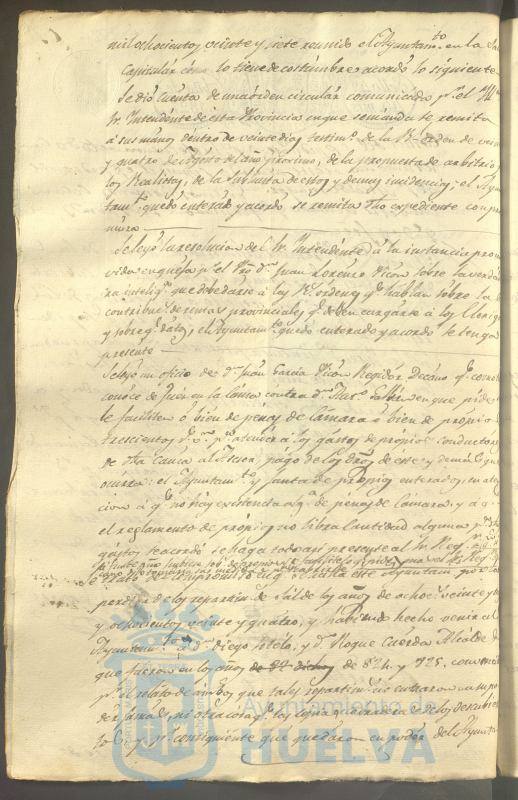 mil ochocientos veinte y siete reunido el Ayuntam.to en la Sala
Capitular como lo tiene de costumbre acordó lo siguiente
Se dió cuenta de una orden circular comunicada p.r el
Sr. Intendente de esta Provincia en que se manda se remita
á sus manos dentro de veinte dias testim.o de la R.l orden de veinte
y quatro de Agosto del año proximo, de la propuesta de arbitrios
los Realistas, de la subasta de estos y demas incidencias; el Ayun
tam.to quedó enterado y acordó se remita dho expediente con pre
mura
Se leyó la resolucion del Sr. Intendente á la instancia promo
vida en queja p.r el Pro. d.n Juan Lorenzo Vicon sobre la verdade
ra intelig.a que debe darse á las R.s ordenes q.e hablan sobre la
contribuc.n de rentas provinciales q.e deben cargarse á los Clerigos
y sobre q.e datos, el Ayuntam.to quedó enterado y acordó se tenga
presente
Se leyó un oficio de d.n Juan Garcia Vicon Regidor Decano q.e como
conoce de Juez en la causa contra d.n en que pide
le faciliten ó bien de penas de Cámara ó bien de propios
trescientos r.s v.n p.a atender á los gastos de propios conductores
de dha causa al Asesor, pago de los dros de este y demas que
ocurra: el Ayuntam.to y junta de propios enterados, en aten
cion á q.e no hay existencia alg.a de penas de Cámara, y á q.e
el reglamento de propios no libra cantidad alguna p.a
gastos se acordó se haga todo asi presente al Sr. Reg.r
Se trató el en q.e se halla este Ayuntam.to por la
perdida de los repartim.tos de Sal de los años de ochoc.s veinte y
y ochocientos veinte y quatro, y habiendo hecho venir al
Ayuntam.to á d.n Diego Sotelo, y d.n Roque Cuerda Alcaldes
que fueron en los años de dhos de 824 y 825, convinieron
p.r el relato de ambos que tales repartim.tos no entraron en su po
der jamas, ni otra cosa q.e
to y p.r consiguiente que quedaron en poder del Ayunta
Ayuntamiento de
HUELVA